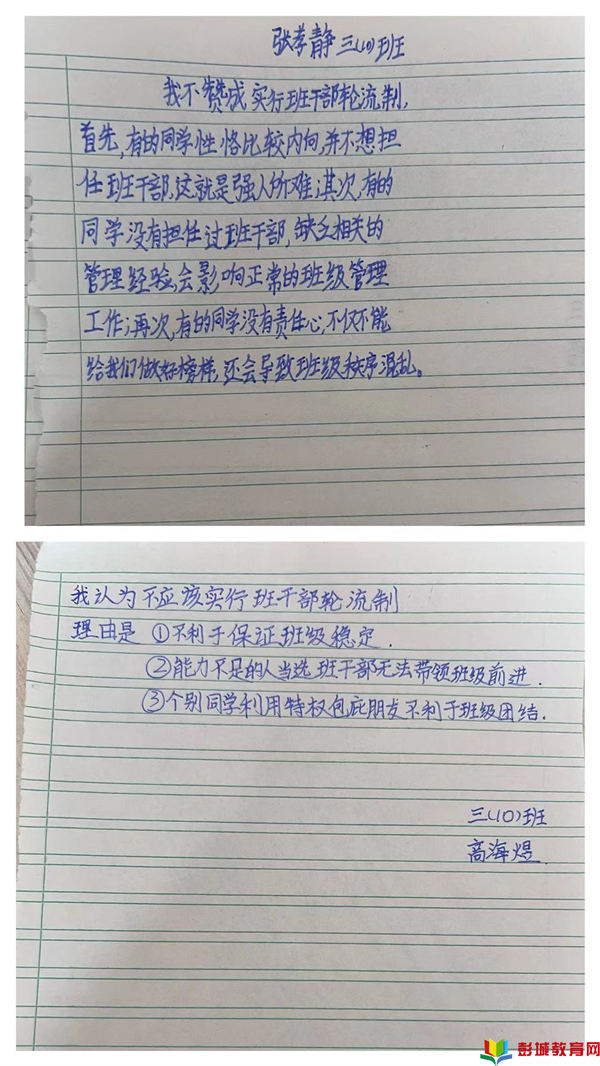 张孝静 三(10)班
我不赞成实行班干部轮流制,
首先,有的同学性恪比较内向,并不想担
任班干部,这就是强人所难;其次,有的
同学没有担任过班干部,缺乏相关的
管理经验,会影响正常的班级管理
工作;再次,有的同学没有责任心,不仅不能
给我们做好榜样,还会导致班级秩序混乱。
我认为不应该实行班干部轮流制
理由是 ①不利于保证班级稳定.
②能力不足的人当选班干部无法带领班级前进.
③个别同学利用特权包庇朋友不利于班级团结.
三(10)班
高海煜.
彭城教育网